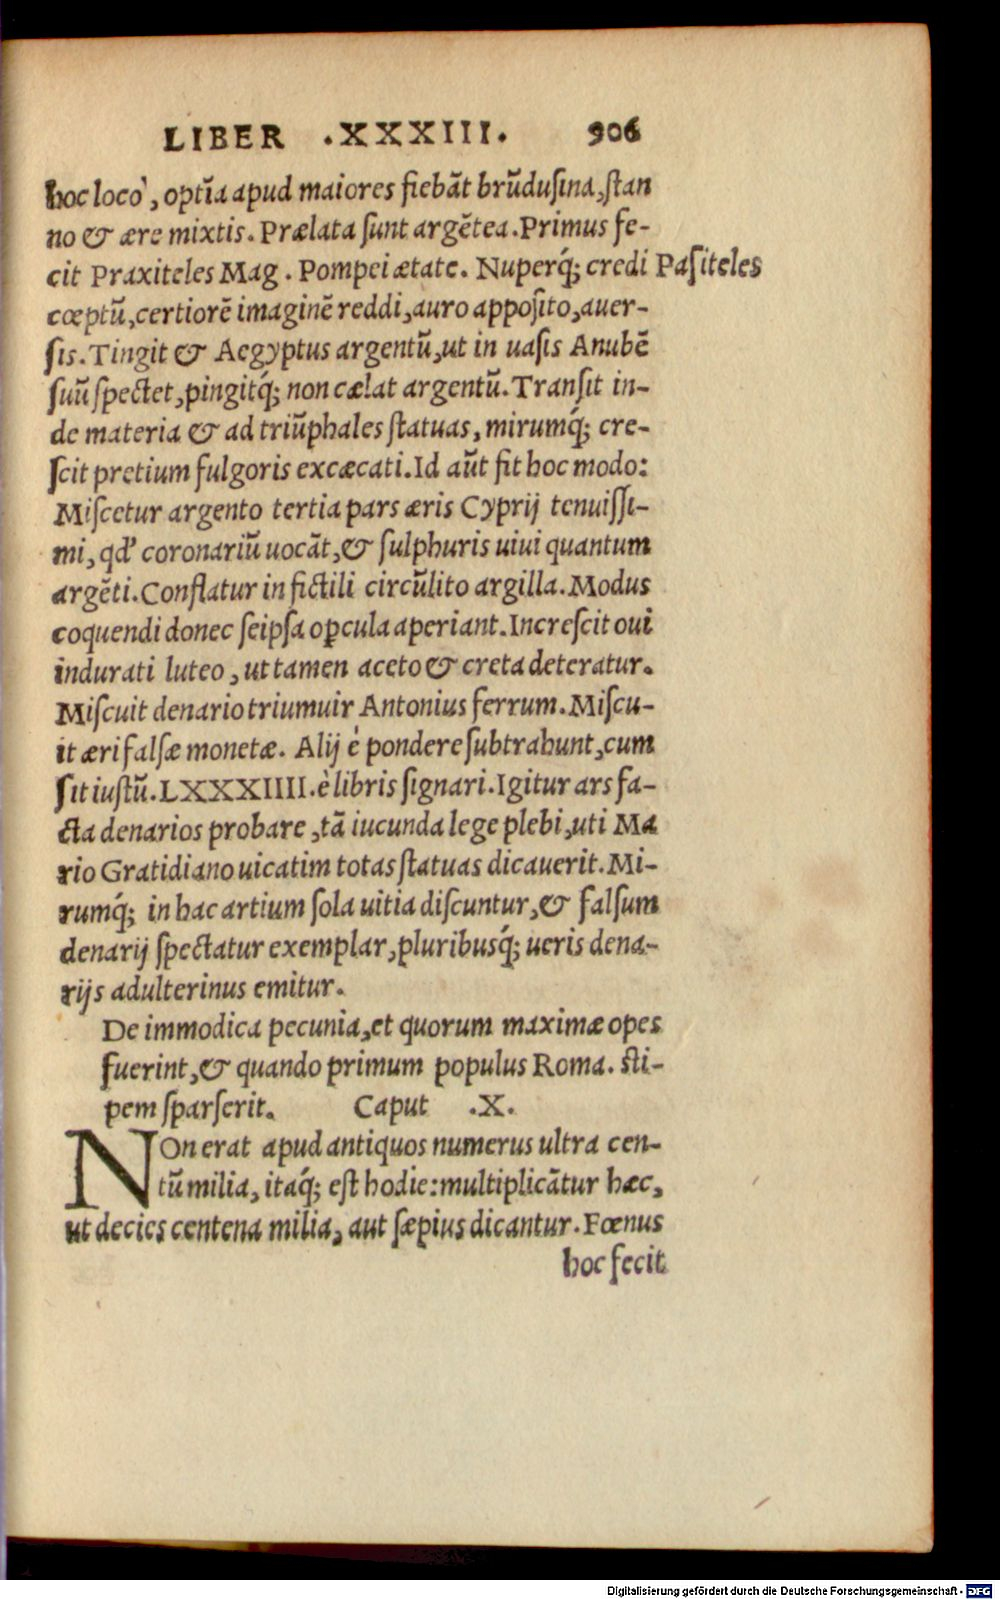 LIBER .XXXIII. 906
hoc loco`, optīa apud maiores fiebāt brūdusina, stan
no & ære mixtis. Prælata sunt argētea. Primus fe-
cit Praxiteles Mag. Pompei ætate. Nuperq́; credi Pasiteles
cœptū, certiorē imaginē reddi, auro apposito, auer-
sis. Tingit & Aegyptus argentū, ut in uasis Anubē
suū spectet, pingitq́; non cælat argentū. Transit in-
de materia & ad triūphales statuas, mirumq́; cre-
scit pretium fulgoris excæcati. Id aūt fit hoc modo:
Miscetur argento tertia pars æris Cyprij tenuissi-
mi, qd' coronariū uocāt, & sulphuris uiui quantum
argēti. Conflatur in fictili circūlito argilla. Modus
coquendi donec seipsa opcula aperiant. Increscit oui
indurati luteo, ut tamen aceto & creta deteratur.
Miscuit denario triumuir Antonius ferrum. Miscu-
it æri falsæ monetæ. Alij è pondere subtrahunt, cum
sit iustū. LXXXIIII. è libris signari. Igitur ars fa-
cta denarios probare, tā iucunda lege plebi, uti Ma
rio Gratidiano uicatim totas statuas dicauerit. Mi-
rumq́; in hac artium sola uitia discuntur, & falsum
denarij spectatur exemplar, pluribusq́; ueris dena-
rijs adulterinus emitur.
De immodica pecunia, et quorum maximæ opes
fuerint, & quando primum populus Roma. sti-
pem sparserit. Caput .X.
NOn erat apud antiquos numerus ultra cen-
tū milia, itaq́; est hodie: multiplicātur hæc,
ut decies centena milia, aut sæpius dicantur. Fœnus
hoc fecit
Digitalisierung gefördert durch die Deutsche Forschungsgemeinschaft - DFG